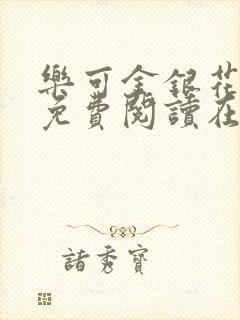 樂可金銀花
免費閱讀在
諸秀寶